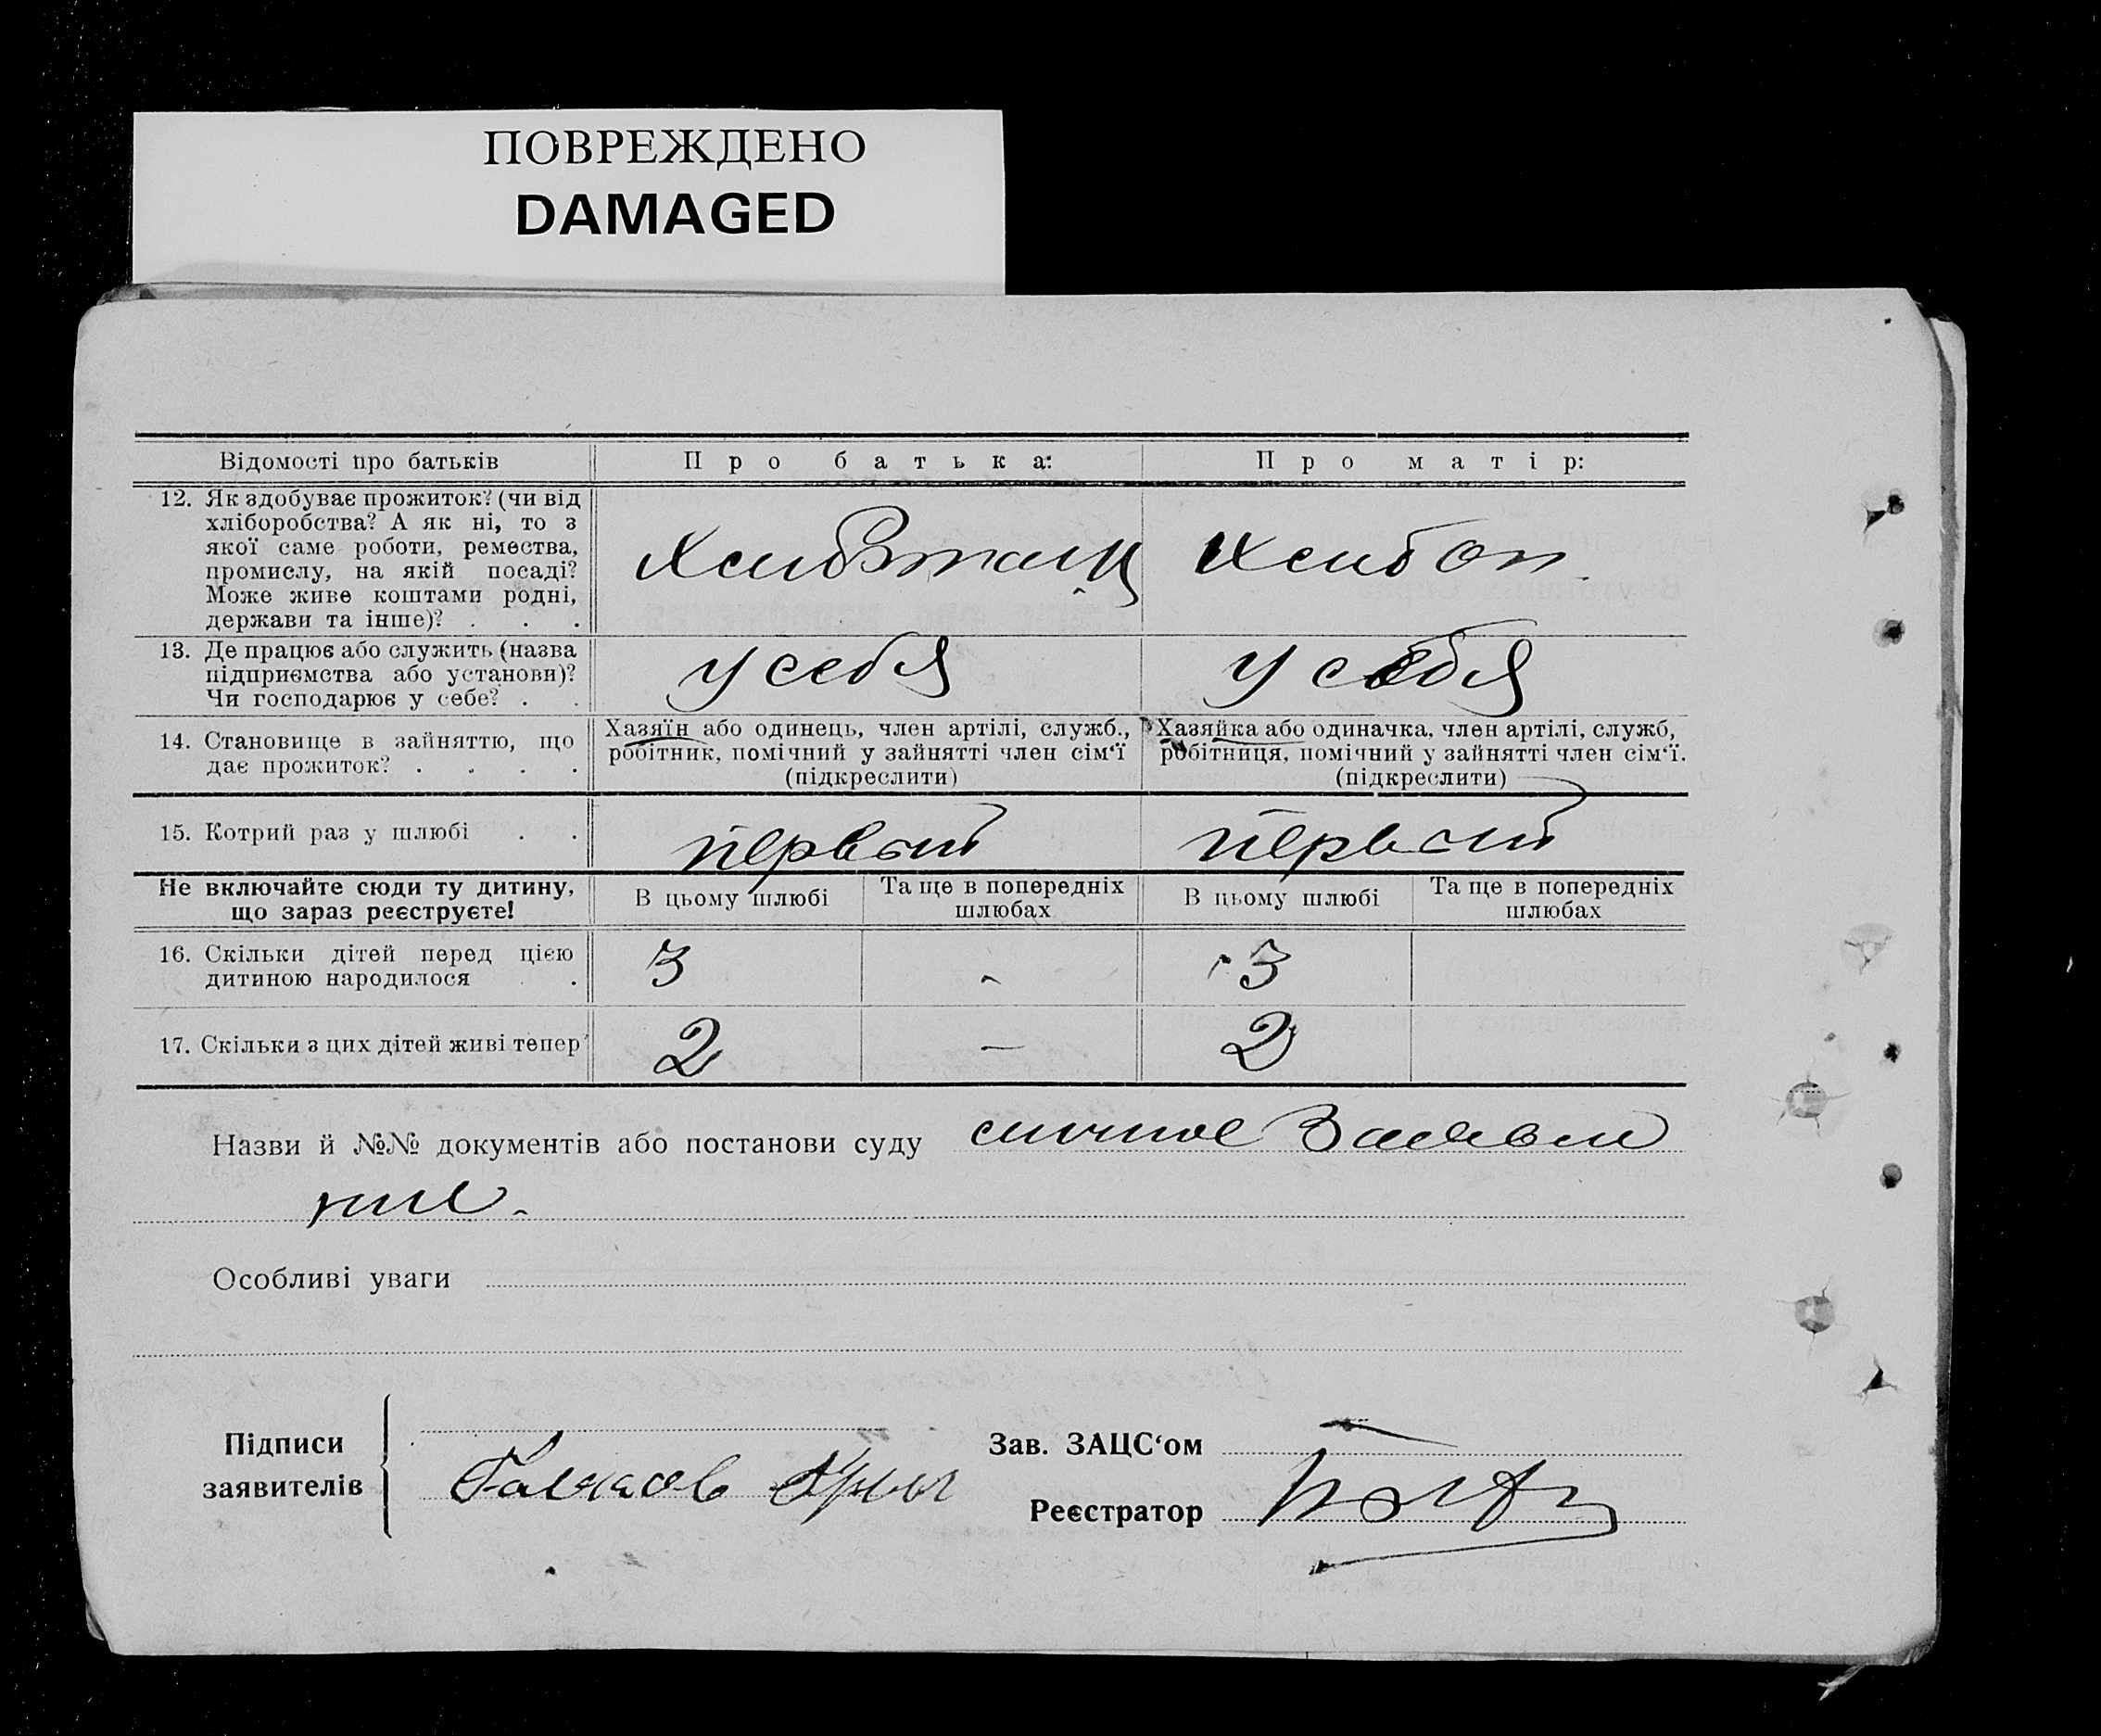 ПОВРЕЖДЕНО
DAMAGED
Відомості про батьків
Про батька:
Про матір:
12. Як здобуває прожиток? (чи від
хліборобства? А як ні, то з
якої саме роботи, ремества,
промислу, на якій посаді?
Може живе коштами родні,
держави та інше)? . . .
13. Де працює або служить (назва
підприємства або установи)?
Чи господарює у себе? . .
у себя
у себя
14. Становище в зайняттю, що
дає прожиток? . . . .
Хазяїн або одинець, член артілі, служб.,
робітник, помічний у зайнятті член сім‘ї
(підкреслити)
Хазяйка або одиначка, член артілі, служб,
робітниця, помічний у зайнятті член сім‘ї.
(підкреслити)
15. Котрий раз у шлюбі . .
первый
первый
Не включайте сюди ту дитину,
що зараз реєструєте!
В цьому шлюбі
Та ще в попередніх
шлюбах
В цьому шлюбі
Та ще в попередніх
шлюбах
16. Скільки дітей перед цією
дитиною народилося .
3
-
3
17. Скільки з цих дітей живі тепер
2
—
2
Назви й №№ документів або постанови суду личное Заявле
ние.
Особливі уваги
Підписи
заявителів
Зав. ЗАЦС‘ом
Реєстратор